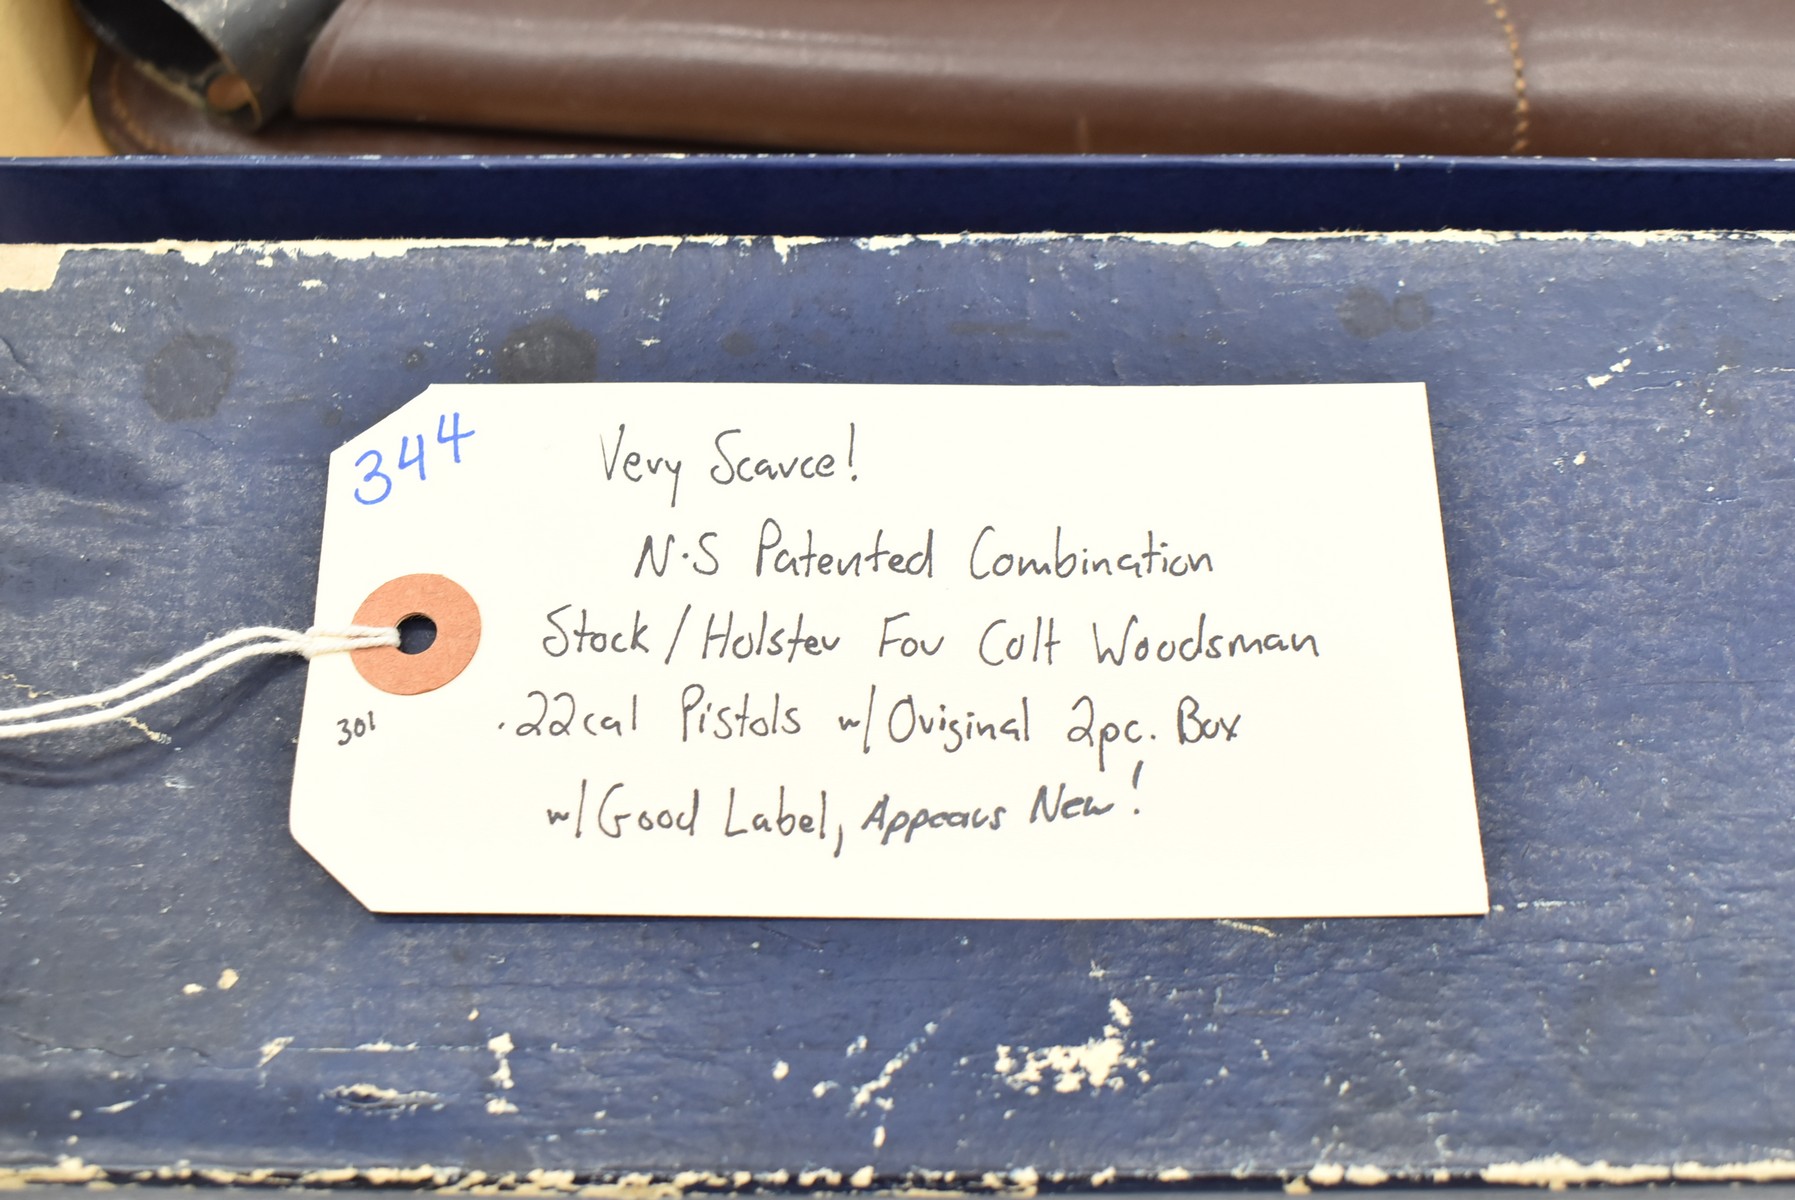 344
Very Scarce!
N.S Patented Combination
Stock/Holster For Colt Woodsman
.22cal Pistols w/Original 2pc. Box
w/Good Label, Appears New!
301